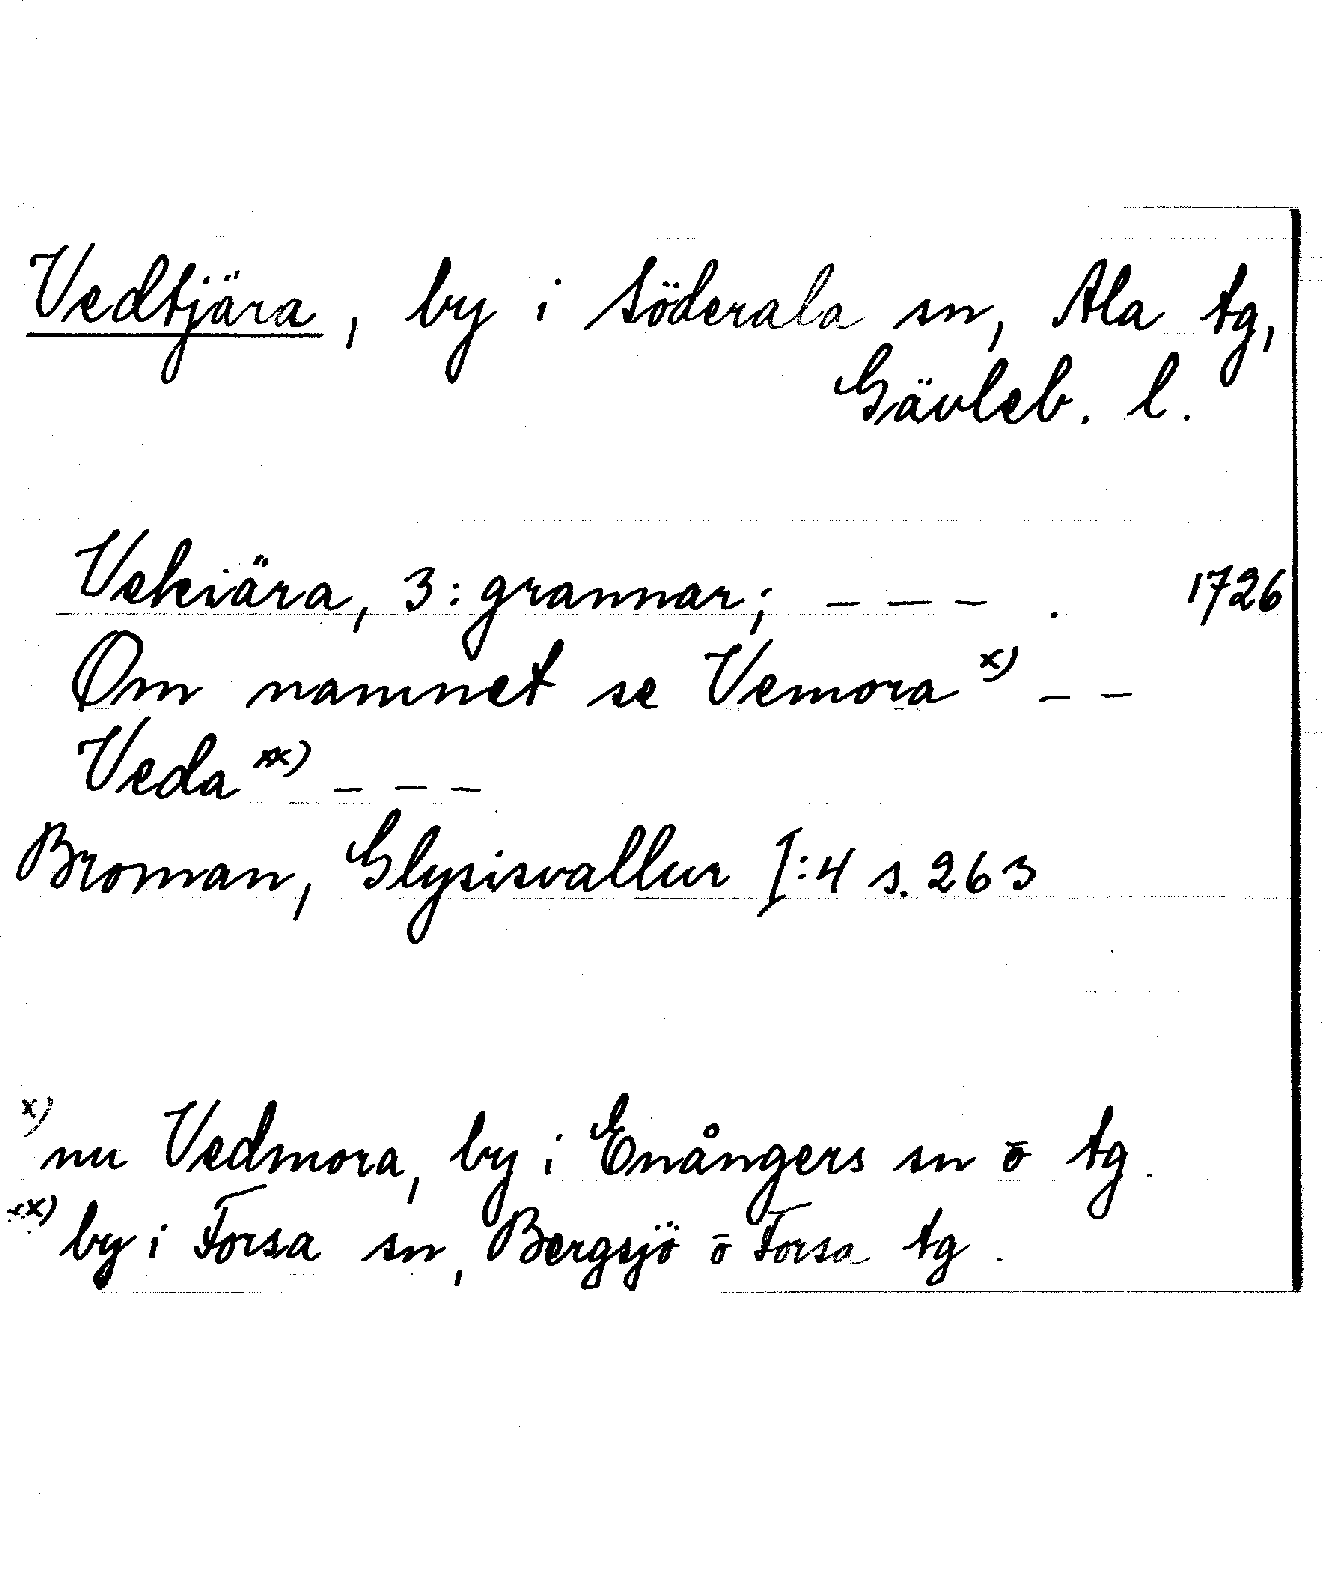 Vedtjära, by i Söderala sn, Ala tg,
Gävleb. l.
Vekiära, 3: grannar; - - - . 1726
Om namnet se Vemora x) - -
Veda xx) - - -
Broman, Glysisvallur I:4 s. 263
x) nu Vedmora, by i Enångers sn o tg.
xx) by i Forsa sn, Bergsjö o Forsa tg.